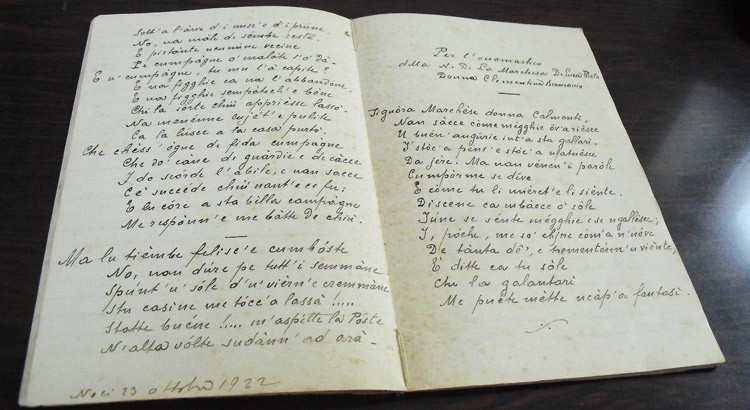 Sott'a l'àrve d'i nusc'e d'i prúne
No, na mále di sèmbe restà.
E pistànte nesciúne vecíne
Pe cumpàgne o'malàte s'o dà-
E n'cumpàgne, tu mu l'à capíte?
E na figghie ca na l'abbandóne.
E na figghie sempátech'e bóne
Chi la sòrte chiù apprièsse lassò.
Na menènne cujét'e pulíte
Ca la lúsce a la casa purtò.
Che chèss'ógne de fída cumpàgne
Che do' cáne de guárdie e de càcce
I do scòrde l'àbile, e nan sacce
Ce succéde chiù nant'e ce fu;
E lu córe a sta bèlla campàgne
Me respónn'e me bàtte de chiù.
Ma lu tièmbe felíse'e cumbóste
No, nan dúre pe tutt'i semmáne.
Spúnt'u'sóle d'u'vièrn'e cremmáne
Stu casíne me tòcc'a lassà!....
Statte buéne!.... m'aspètte la Póste
N'alta vólte sudànn'ad arà-
Noci 23 ottobre 1922
Per l'onomastico
della N. D. La Marchesa De Luca Resta
Donna Clementina
Signóra Marchése donna Calmente,
Nan sàcce còme mègghie òv'arièsse
U buèn'augúrie int'a sta gallarì.
I'stòc'a pèns'e stòc'a
Da jère. Ma nan vènen'i paròle
Cumpòrme se déve
E còme tu li mièret'e li siènte.
Discene ca mbàcce o'sóle
Iúne se sènte mègghie e se ngallèsce;
I, pòche, me so' còm'a n'néve
De tànta dò', e trementènn'u viènte,
E' ditte ca tu sóle
Chi la galantarì
Me puète mètte ncàp'a fantasì.